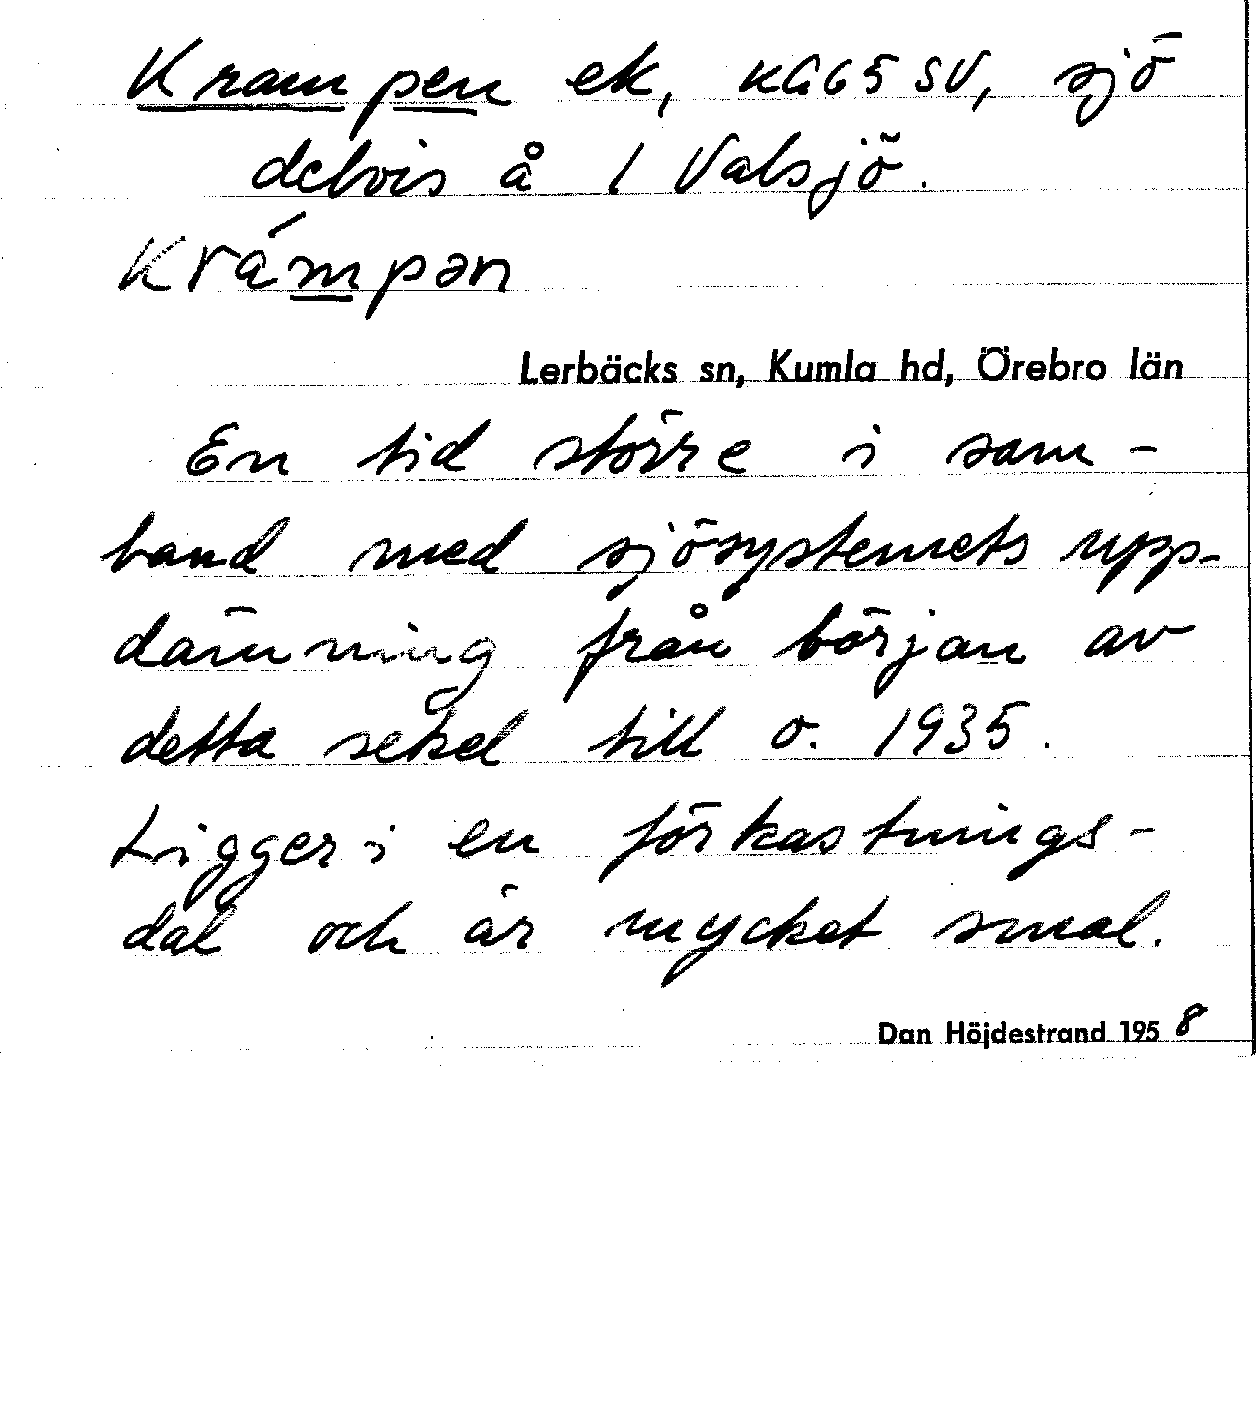 Krampen ek, KG65 SV, sjö
delvis å 1 Valsjö.
Krámpən
Lerbäcks sn, Kumla hd, Örebro län
En tid större i sam-
band med sjösystemets upp-
dämning från början av
detta sekel till o. 1935.
Ligger i en förkastnings-
dal och är mycket smal.
Dan Höjdestrand 1958